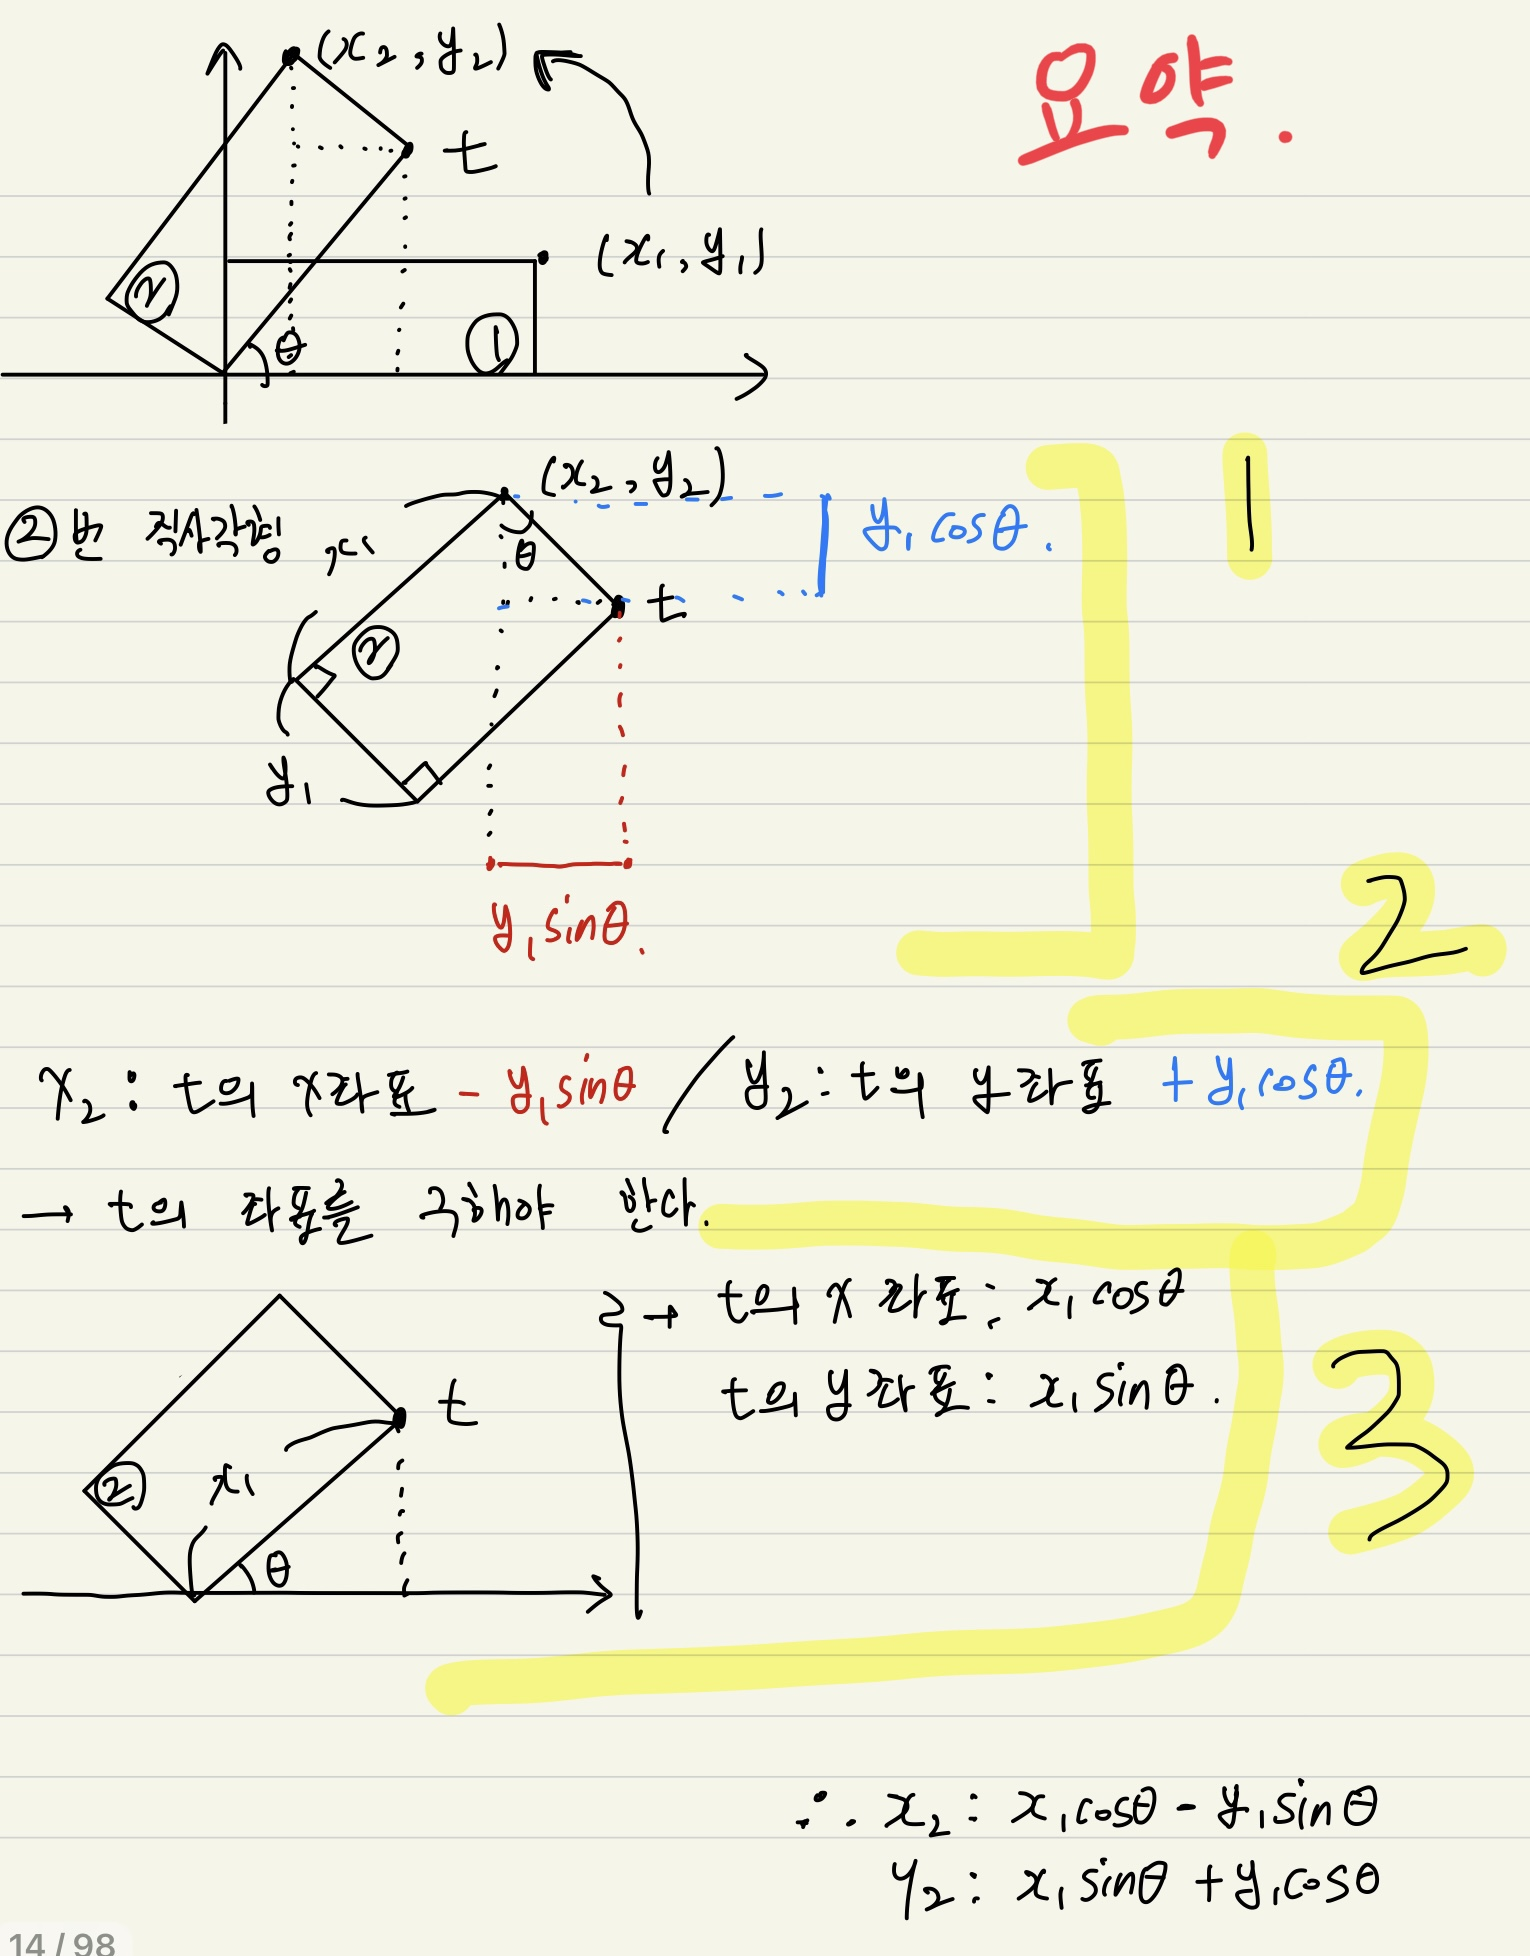 요약.
(x₂, y₂)
t
(x₁, y₁)
②
θ
①
②번 직사각형
(x₂, y₂)
y₁ cosθ.
1
x₁
θ
t
②
y₁
y₁ sinθ.
2
x₂ : t의 x좌표 - y₁ sinθ / y₂ : t의 y좌표 + y₁ cosθ.
→ t의 좌표를 구해야 한다.
→ t의 x좌표 : x₁ cosθ
t의 y좌표 : x₁ sinθ.
3
t
②
x₁
θ
∴ x₂ : x₁cosθ - y₁sinθ
y₂ : x₁ sinθ + y₁cosθ
14 / 98